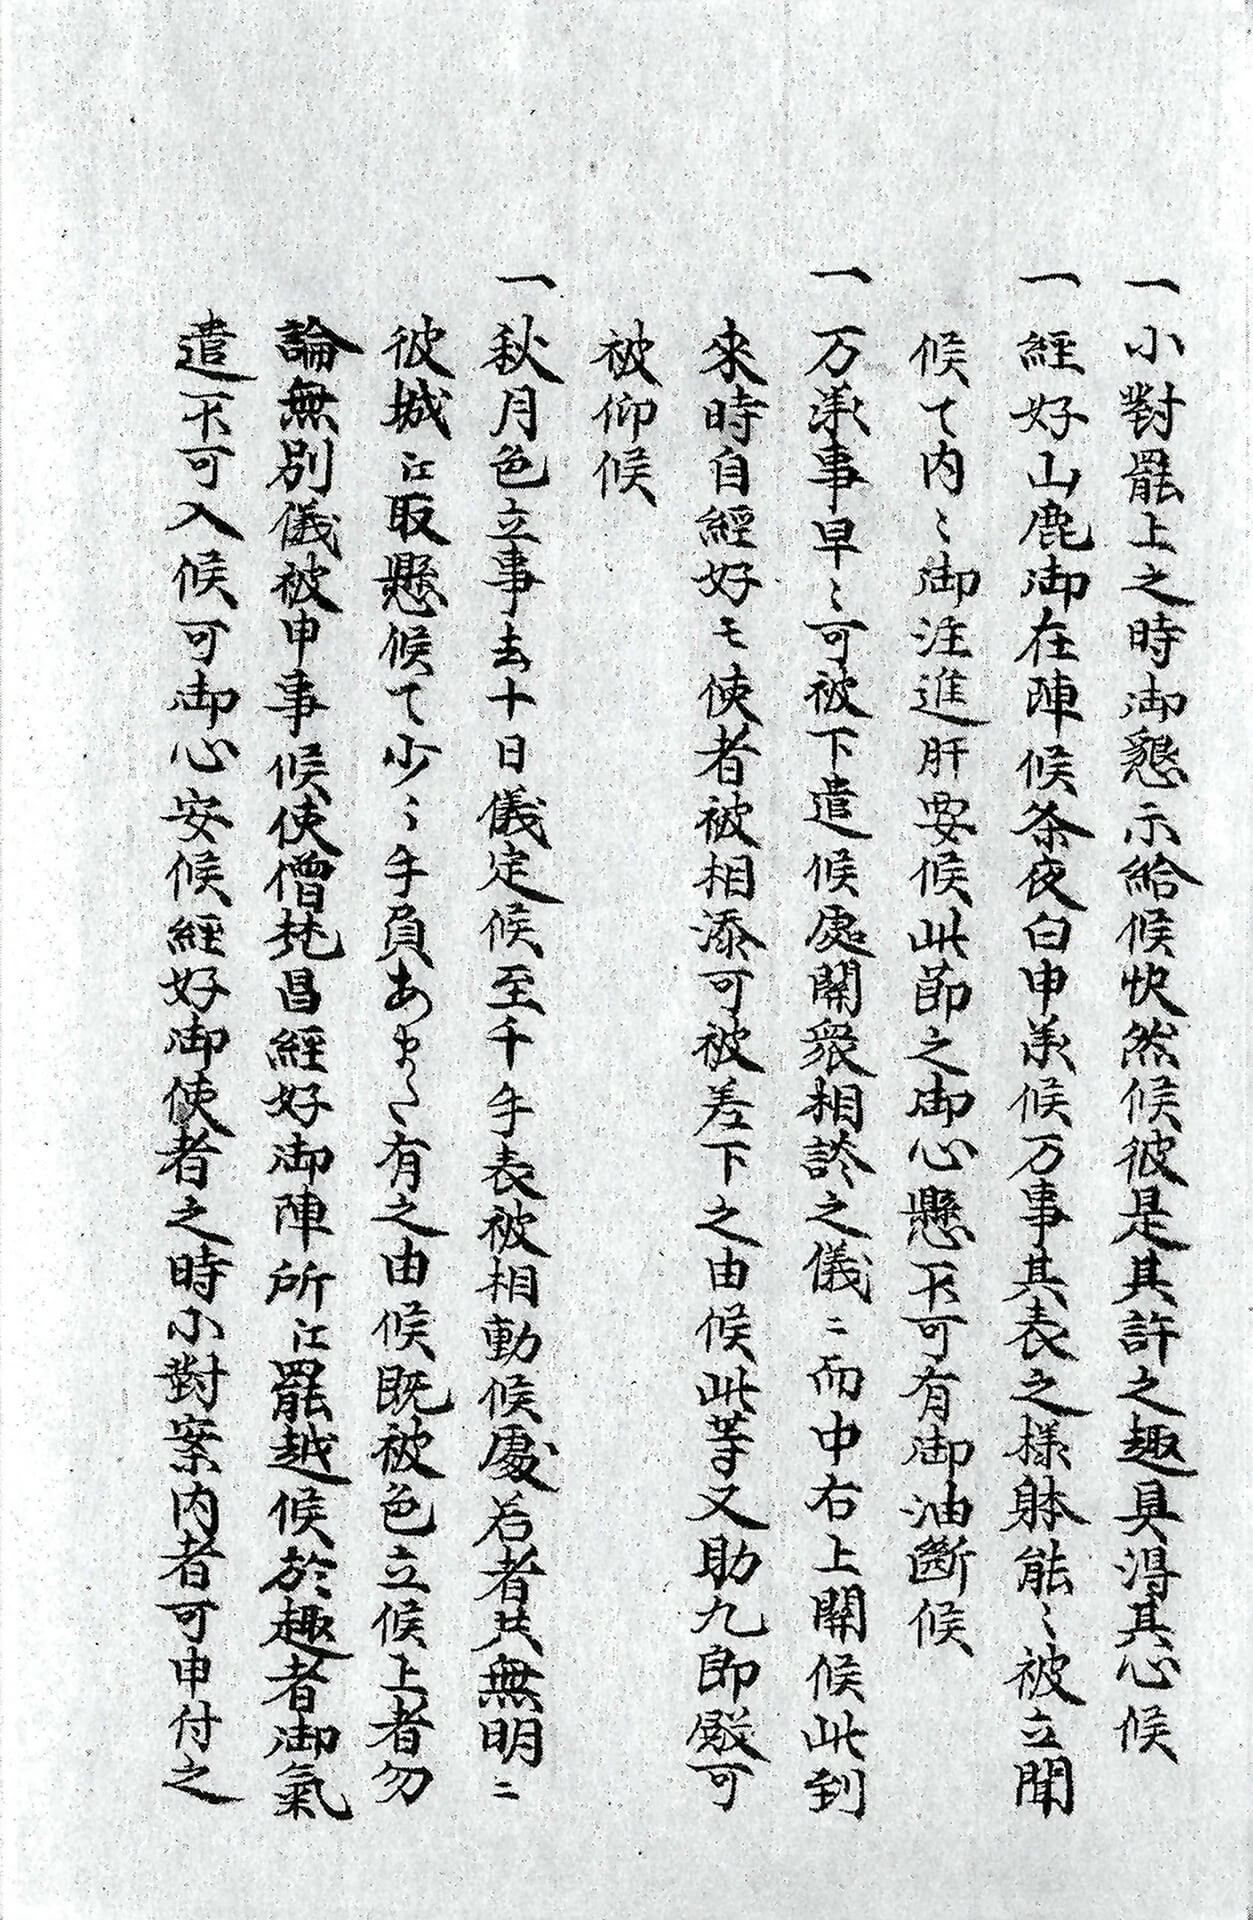 一小對罷上之時御懇示給候快然候彼是其許之趣具得其心候
一經好山鹿御在陣候条夜白申承候万事其表之様躰能〻被立聞
候て内〻御注進肝要候此節之御心懸不可有御油斷候
一万承事早〻可被下遣候處闇衆相談之儀ニ而中右上関候此到
來時自經好モ使者被相添可被差下之由候此等又助九郎殿可
被仰候
一秋月色立事去十日儀定候至千手表被相動候處若者共無明ニ
彼城江取懸候て少〻手負あまた有之由候既被色立候上者勿
論無別儀被申事候使僧梵昌經好御陣所江罷越候於趣者御氣
遣不可入候可御心安候經好御使者之時小對案内者可申付之